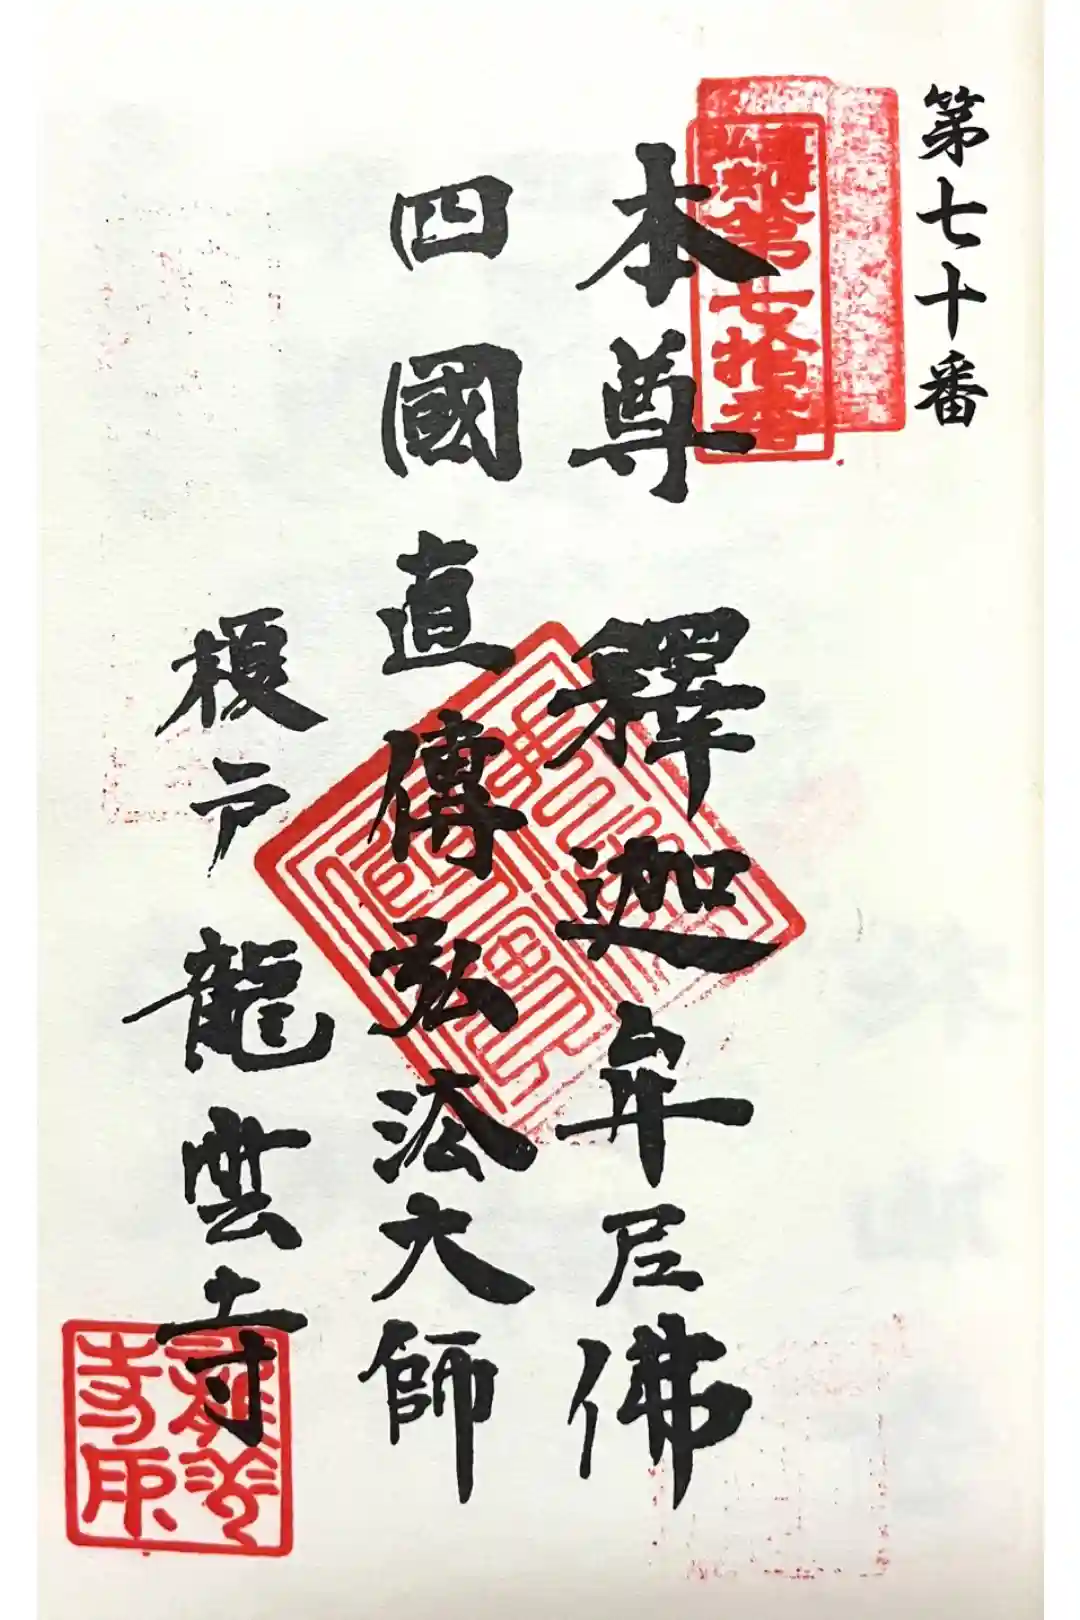 第七十番
本尊 釋迦牟尼佛
四國直傳弘法大師
榎戸 龍雲寺
第七拾番
龍雲
寺印